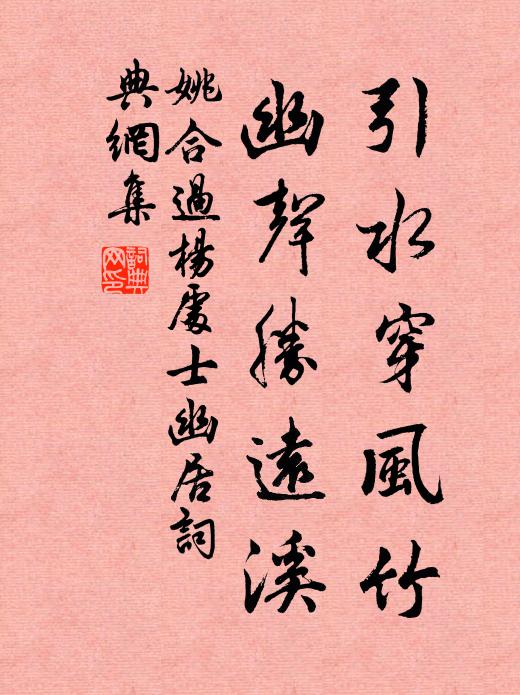 引水穿風竹
幽聲勝遠溪
姚合過楊處士幽居詞
典網集
詞典網印